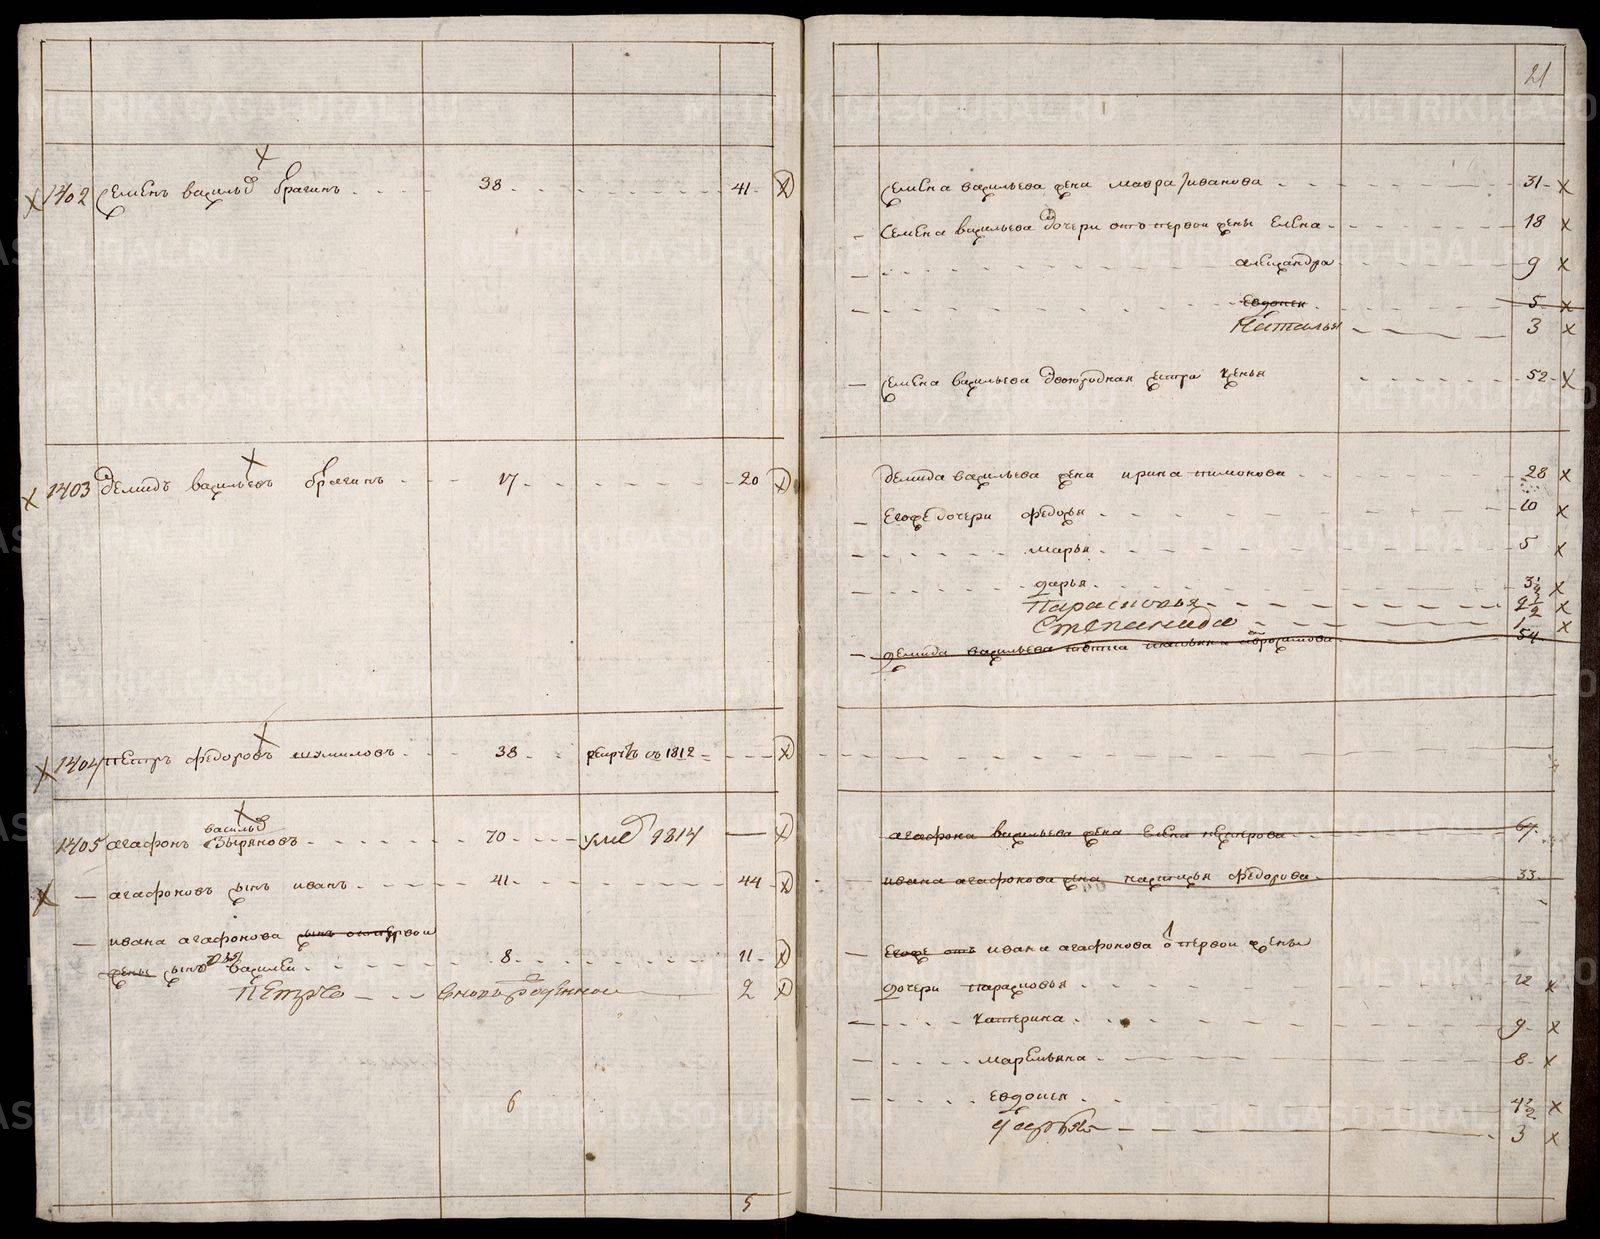 1402 Семенъ васильевъ брагинъ 38 41
1403 Демидъ васильевъ брагинъ 17 20
1404 петръ федоровъ шумиловъ 38 рекрутъ въ 1812
васильевъ
1405 агафонъ Зыряновъ 70 умре 1814
агафоновъ сынъ иванъ 41 44
ивана агафонова сынъ от первой
жены сынъ василей 8 11
Петръ вновь рожденной 2
6
5
21
Семена васильева жена мавра иванова 31
Семена васильева дочери отъ первой жены Елена 18
александра 9
Евдокея 5
Наталья 3
Семена васильева двоюродная сестра 52
Демида васильева жена ирина тимофеева 28
Егоже дочери федосья 10
марья 5
дарья 3 1/2
Парасковья 2 1/2
Степанида 1
демида васильева тетка 54
агафона васильева жена Елена 67
ивана агафонова жена настасья федорова 33
Егоже отъ ивана агафонова о первой жены
дочери парасковья 12
катерина 9
маремьяна 8
евдокея 4 1/2
дарья 3
METRIKI.GASO-URAL.RU